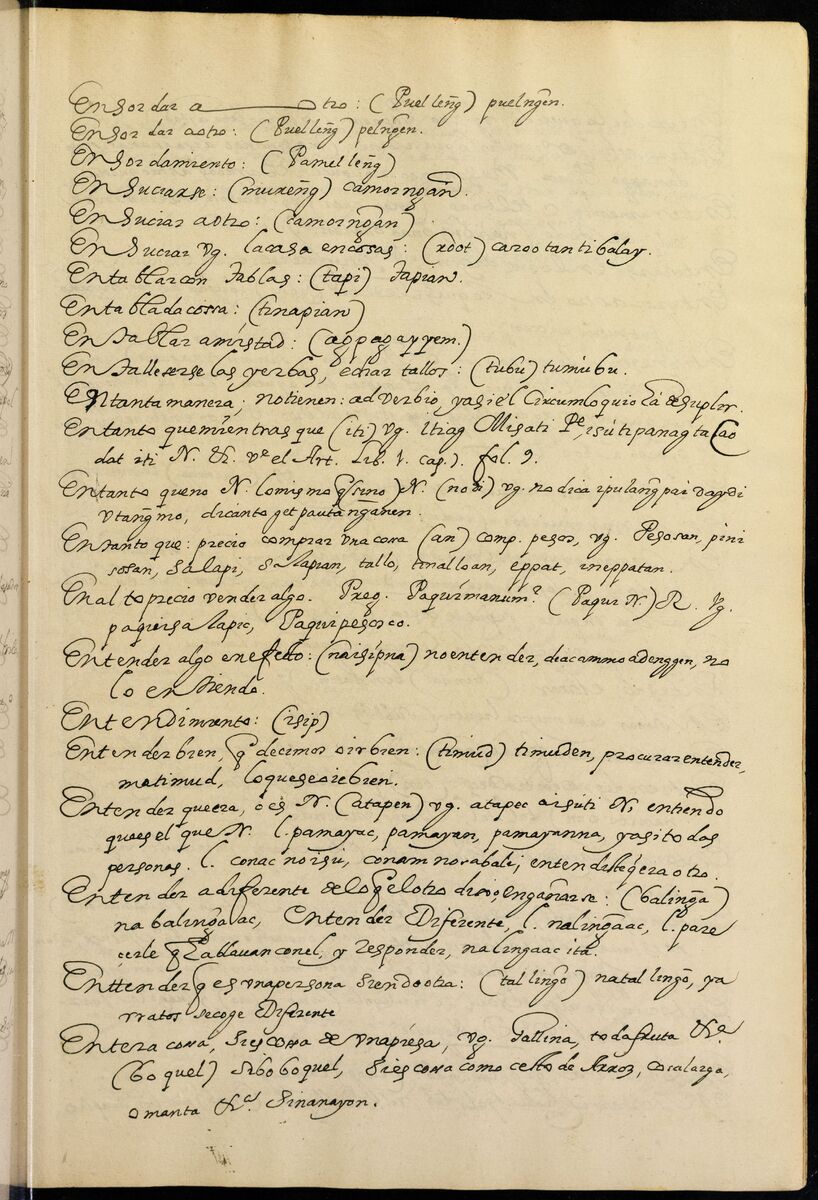 Ensordar a otro: (Puelleng̃) puelng̃en.
Ensordar aotro: (Puelleng̃) pelng̃en.
Ensordamiento: (Pamelleng̃)
Ensuciarse: (mureng̃) camorng̃an.
Ensuciar aotro: (camorng̃an)
Ensuciar vg. lacasa encosas: (root) caroo tan ti balay.
Entablar con tablas: (tapi) tapian.
Entablada cossa: (tinapian)
Entablar amistad: (agpagayyem.)
Entallecerse las yerbas, echar tallos: (tubu) tumubu.
En tanta manera; no tienen: adverbio yasi el Circumloquio ha de suplir.
En tanto que mientras que (iti) vg. itiag Misa ti Pe, isu ti panagtacao
dat iti N. &. ve el Art. Lib. 1. cap. ). fol. 9.
En tanto que no N. lo mismo q̃ (sino) N. (nodi) vg. no dica ipulang̃ pai daydi
vtang̃mo, dicanto get pautang̃anen.
En tanto que: precio comprar vna cosa (an) comp. pesos, vg. Pesosan, pini
sosan, salapi, salapian, tallo, tinalloan, eppat, ineppatan.
En alto precio vender algo. Preg. Paquimanum? (Paqui N.) R. vg.
paquisalapic, Paquipesosco.
Entender algo en efecto: (naisipna) no entender, diacammoadenggen, no
lo entiendo.
Entendimiento: (isip)
Entender bien, q̃ decimos oir bien: (timud) timuden, procurar entender,
matimud, lo que se oie bien.
Entender que era, o es N. (atapen) vg. atapec aisuti N, entiendo
que es el que N. l. pamayac, pamayan, pamayanna, yasi todas
personas. l. conac no isu, conam no rabale; entendiste q̃ era otro.
Entender a diferente de lo q̃ el otro dixo, engañarse: (baling̃a)
nabaling̃aac, Entender Diferente, l. naling̃aac, l. pare
cerle q̃ hablauan con el, y responder, nalingaac ita.
Enttender q̃ es vna persona siendo otra: (talling̃o) natalling̃o, ya
vratos se coge Diferente
Entera cosa, si es cosa de vna piesa, vg. Gallina, toda fruta &a.
(boquel) siboboquel, si es cosa como cesto de Arroz, cosa larga,
o manta &a Sinanayon.